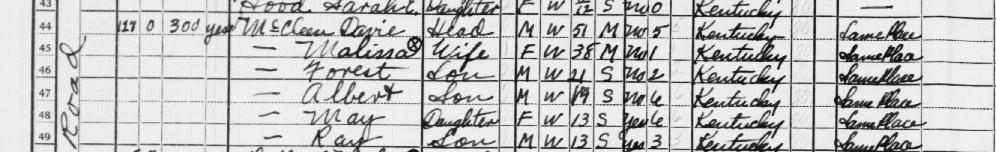 43 Hood, Sarah C. Daughter F W /12 S No 0 Kentucky —
44 127 0 300 yes McCleen Davie Head M W 51 M No 5 Kentucky Same Place
45 — Malissa ⓧ Wife F W 38 M No 1 Kentucky Same Place
46 — Forest Son M W 21 S No 2 Kentucky Same Place
47 — Albert Son M W 19 S No 6 Kentucky Same Place
48 — May Daughter F W 13 S Yes 6 Kentucky Same Place
49 — Ray Son M W 13 S yes 3 Kentucky Same Place
Road